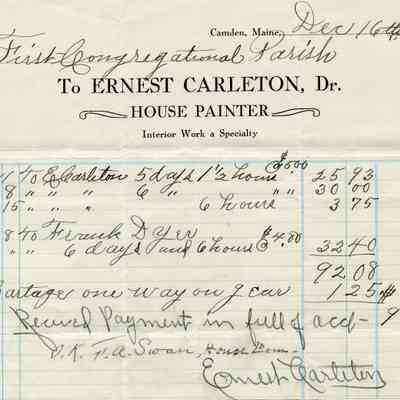 Camden, Maine, Dec 16th
First Congregational Parish
To ERNEST CARLETON, Dr.
HOUSE PAINTER
Interior Work a Specialty
1 To E Carleton 5 days 1 1/2 hours @ $5.00 25 93
8 " " " 6 " " " 30 00
15 " " " 6 hours 3 75
8 To Frank Dyer
" " 6 days and 6 hours @ $4.80 32 40
92 08
artage one way on g car 1 25
Received Payment in full of acct- 9
O.K. F.A. Swan, House Com.
Ernest Carleton